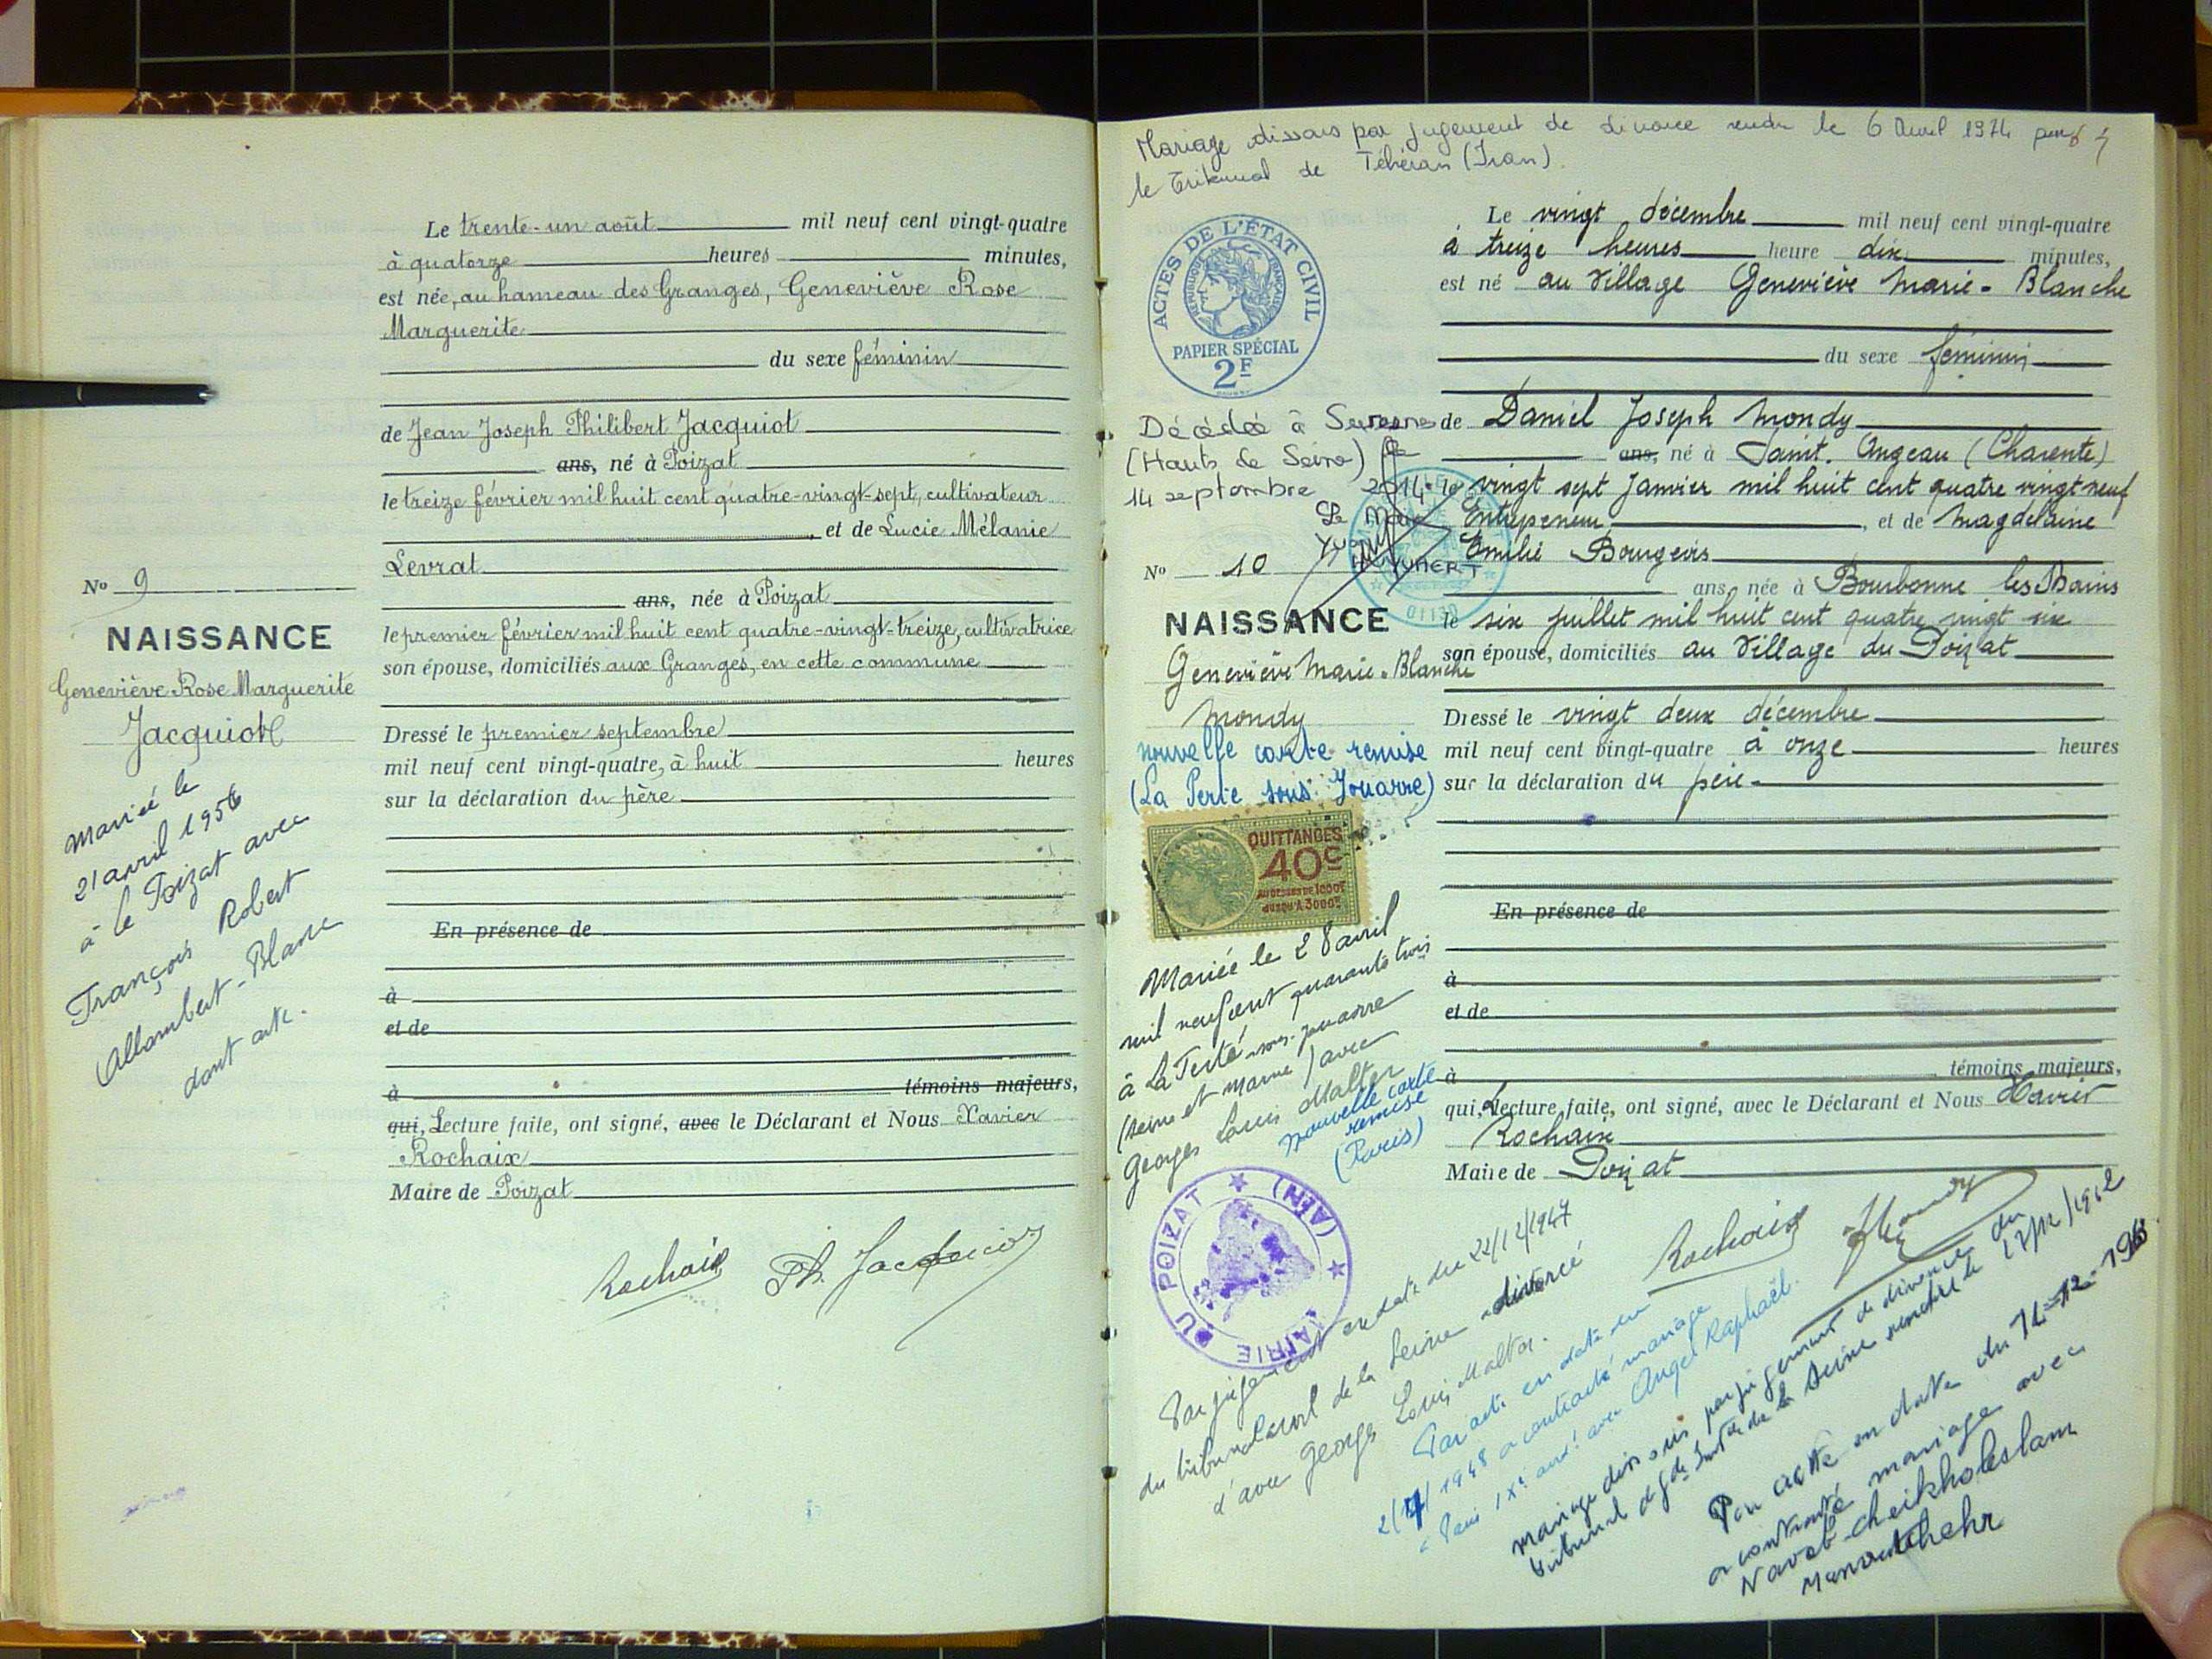 Le trente-un août mil neuf cent vingt-quatre
à quatorze heures minutes,
est née, au hameau des Granges, Geneviève Rose
Marguerite
du sexe féminin
de Jean Joseph Philibert Jacquiot
ans, né à Poizat
le treize février mil huit cent quatre-vingt-sept, cultivateur
et de Lucie Mélanie
Levrat
ans, née à Poizat
le premier février mil huit cent quatre-vingt-treize, cultivatrice
son épouse, domiciliés aux Granges, en cette commune
Dressé le premier septembre
mil neuf cent vingt-quatre, à huit heures
sur la déclaration du père
En présence de
à
et de
à témoins majeurs,
qui, Lecture faite, ont signé, avec le Déclarant et Nous Xavier
Rochaix
Maire de Poizat
Rochaix Ph. Jacquiot
No 9
NAISSANCE
Geneviève Rose Marguerite
Jacquiot
Mariée le
21 avril 1956
à le Poizat avec
François Robert
Allombert-Blanc
dont acte.
Mariage dissous par jugement de divorce rendu le 6 Avril 1974 par
le Tribunal de Téhéran (Iran).
ACTES DE L'ÉTAT CIVIL
RÉPUBLIQUE FRANÇAISE
PAPIER SPÉCIAL
2F
Décédée à Suresnes
(Hauts de Seine) le
14 septembre 2014
Le Maire
01130
No 10
NAISSANCE
Geneviève Marie-Blanche
Mondy
nouvelle carte remise
(La Ferté sous Jouarre)
QUITTANCES
40c
AU DESSUS DE 1000F
JUSQU'A 3000F
Mariée le 28 avril
mil neuf cent quarante trois
à La Ferté-sous-Jouarre
(Seine et Marne) avec
Georges Louis Malter
nouvelle carte
remise
(Paris)
MAIRIE DU POIZAT (AIN)
Le vingt décembre mil neuf cent vingt-quatre
à treize heures heure dix minutes,
est né au Village Geneviève Marie-Blanche
du sexe féminin
de Daniel Joseph Mondy
ans, né à Saint-Angeau (Charente)
le vingt sept Janvier mil huit cent quatre vingt neuf
Entrepreneur, et de Magdelaine
Emilie Bourgeois
ans, née à Bourbonne les Bains
le six juillet mil huit cent quatre vingt six
son épouse, domiciliés au Village du Poizat
Dressé le vingt deux décembre
mil neuf cent vingt-quatre à onze heures
sur la déclaration du père
En présence de
à
et de
à témoins majeurs,
qui, Lecture faite, ont signé, avec le Déclarant et Nous Xavier
Rochaix
Maire de Poizat
Rochaix Mondy
Par jugement en date du 22/12/1947
du tribunal civil de la Seine divorcé
d'avec Georges Louis Malter.
Par acte en date du
2/7/1948 a contracté mariage
à Paris IXe arrdt avec Angel Raphaël.
mariage dissous par jugement de divorce du
tribunal de gde Instce de la Seine rendu le
Par acte en date du 14-12-196
a contracté mariage avec
Navab-cheikholeslam
Manoutchehr